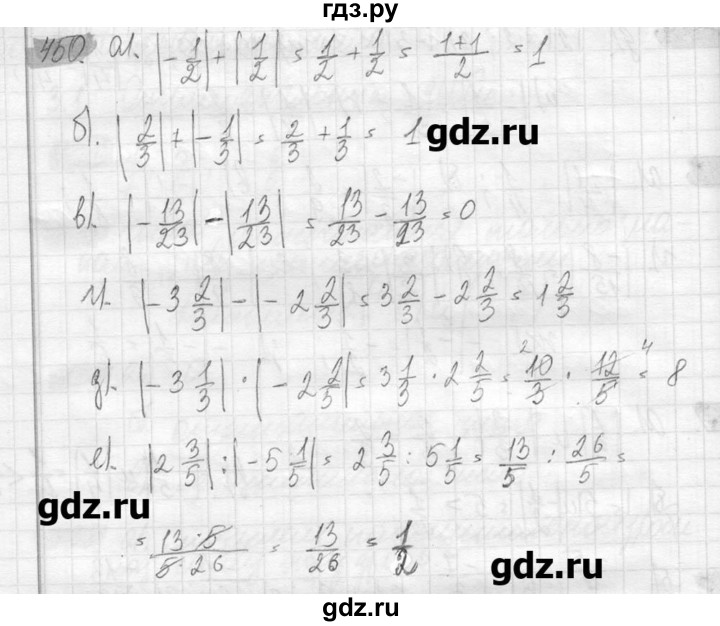 гдз.ру
450. а). |-1/2| + |1/2| = 1/2 + 1/2 = (1+1)/2 = 1
б). |2/3| + |-1/3| = 2/3 + 1/3 = 1
gdz.ru
в). |-13/23| - |13/23| = 13/23 - 13/23 = 0
г). |-3 2/3| - |-2 2/3| = 3 2/3 - 2 2/3 = 1 2/3
д). |-3 1/3| · |-2 2/5| = 3 1/3 · 2 2/5 = ²10/3 · 12/5 ⁴ = 8
е). |2 3/5| : |-5 1/5| = 2 3/5 : 5 1/5 = 13/5 : 26/5 =
gdz.ru
= (13·5)/(5·26) = 13/26 = 1/2
gdz.ru
gdz.ru